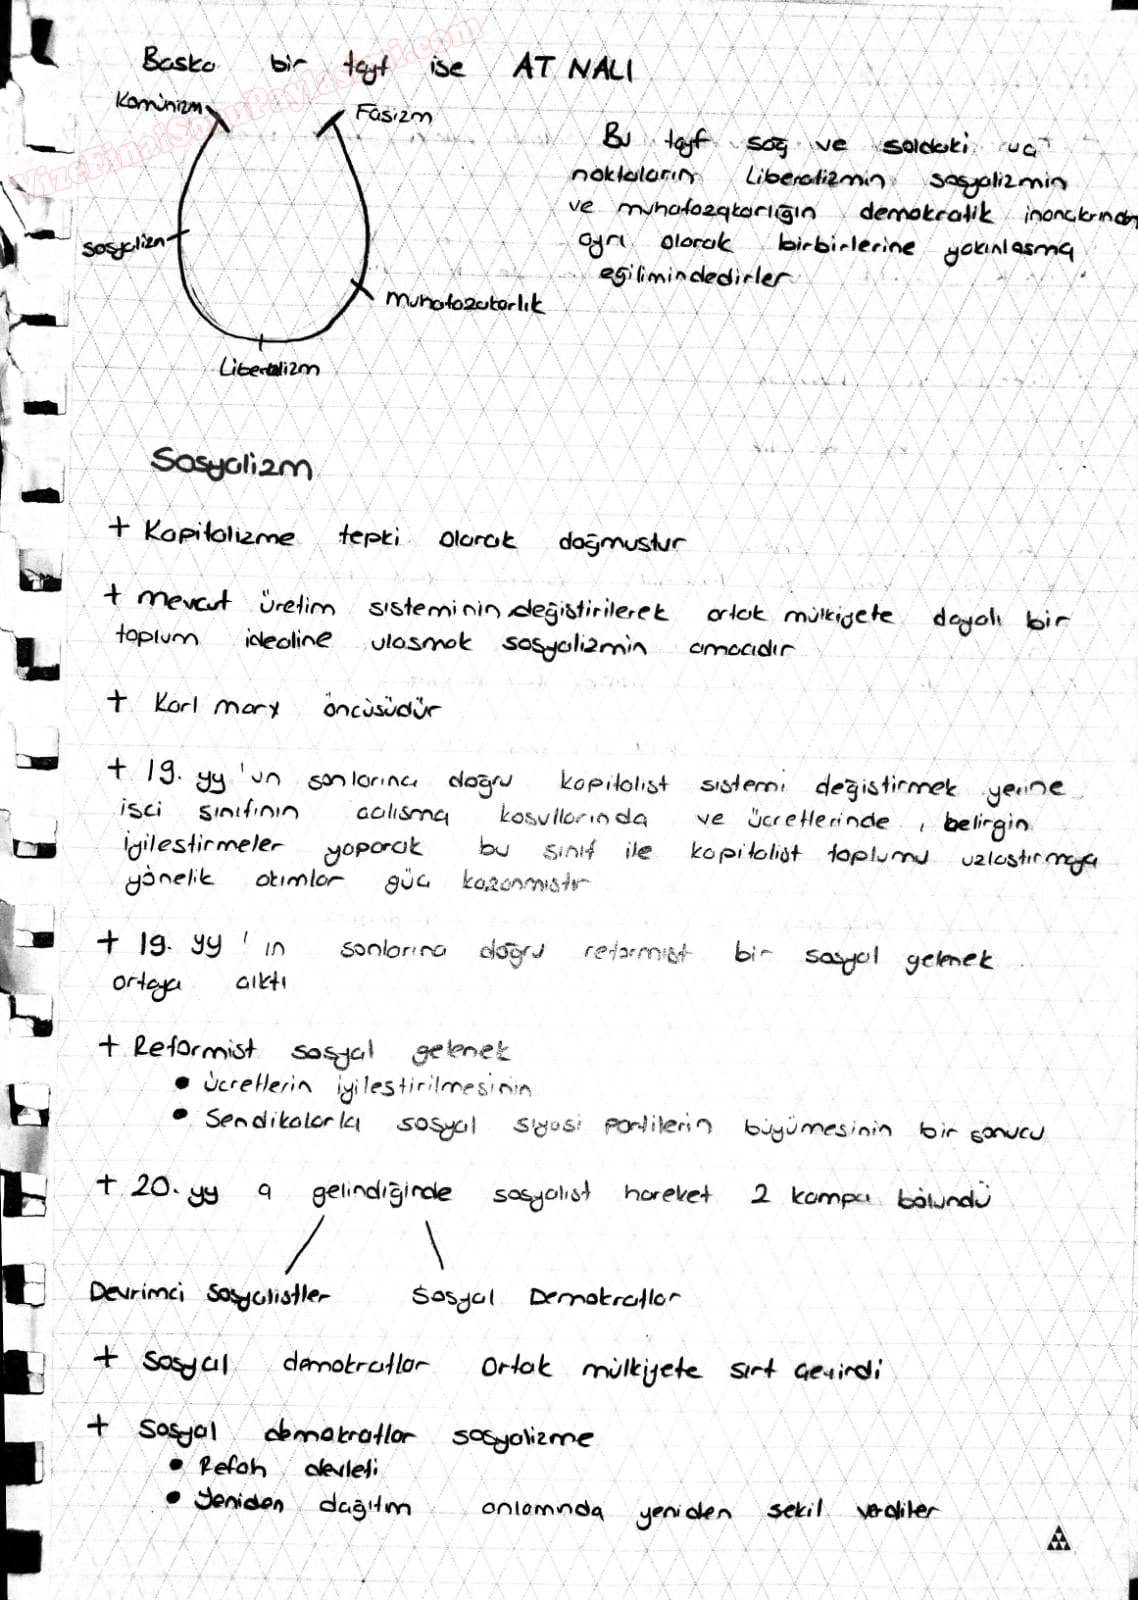 VizeFinalSoruPaylasimi.com
Baska bir tayf ise AT NALI
Kominizm
Fasizm
sosyalizm
muhafazakarlık
Liberalizm
Bu tayf sağ ve soldaki uç
noktaların Liberalizmin sosyalizmin
ve muhafazakarlığın demokratik inançlarından
ayrı olarak birbirlerine yakınlasma
eğilimindedirler
Sosyalizm
+ Kapitalizme tepki olarak doğmustur
+ mevcut üretim sisteminin değistirilerek ortak mülkiyete dayalı bir
toplum idealine ulasmak sosyalizmin amacıdır
+ Karl marx öncüsüdür
+ 19. yy 'un sonlarına doğru kapitalist sistemi değistirmek yerine
isci sınıfının calısma kosullarında ve ücretlerinde, belirgin
iyilestirmeler yaparak bu sınıf ile kapitalist toplumu uzlastırmaya
yönelik akımlar güç kazanmıstır
+ 19. yy 'ın sonlarına doğru reformist bir sosyal gelenek
ortaya cıktı
+ Reformist sosyal gelenek
• Ücretlerin iyilestirilmesinin
• Sendikalarla sosyal siyasi partilerin büyümesinin bir sonucu
+ 20. yy a gelindiğinde sosyalist hareket 2 kampa bölündü
Devrimci Sosyalistler Sosyal Demokratlar
+ Sosyal demokratlar ortak mülkiyete sırt çevirdi
+ Sosyal demokratlar sosyalizme
• Refah devleti
• Yeniden dağıtım anlamında yeniden sekil verdiler